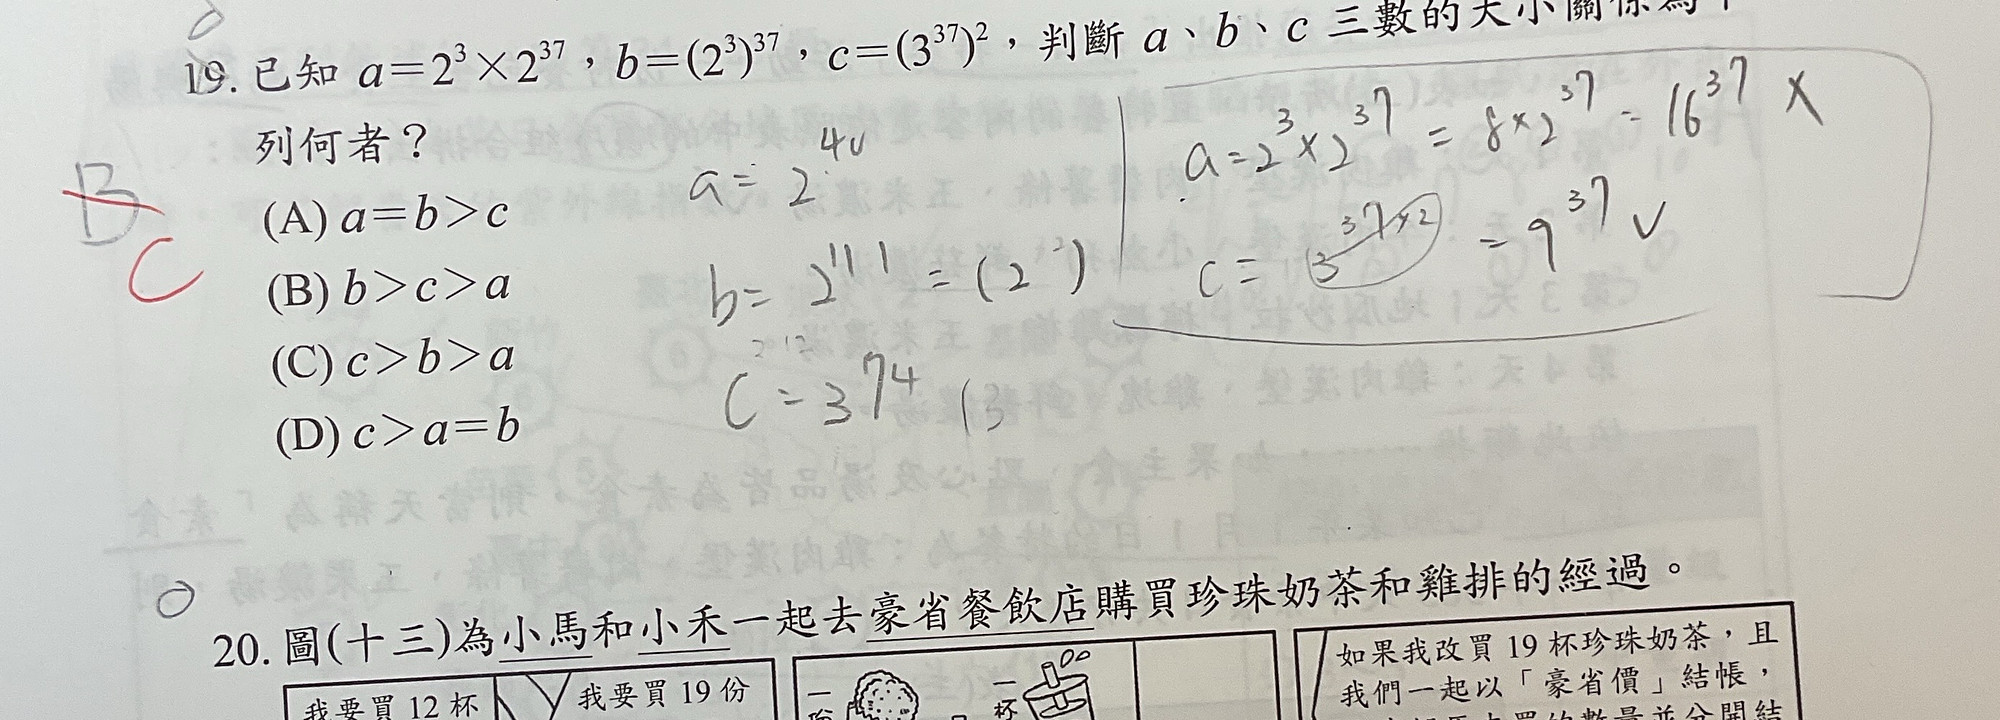 19. 已知 a=2³×2³⁷，b=(2³)³⁷，c=(3³⁷)²，判斷 a、b、c 三數的大小關係為下
列何者？
(A) a=b>c
(B) b>c>a
(C) c>b>a
(D) c>a=b
B
C
a= 2⁴⁰
b= 2¹¹¹ = (2²)
c = 3⁷⁴ (3
a=2³×2³⁷ = 8×2³⁷ = 16³⁷ ×
c = 3³⁷ˣ² = 9³⁷ ✓
20. 圖(十三)為小馬和小禾一起去豪省餐飲店購買珍珠奶茶和雞排的經過。
我要買 12 杯
我要買 19 份
一
一杯
如果我改買 19 杯珍珠奶茶，且
我們一起以「豪省價」結帳，